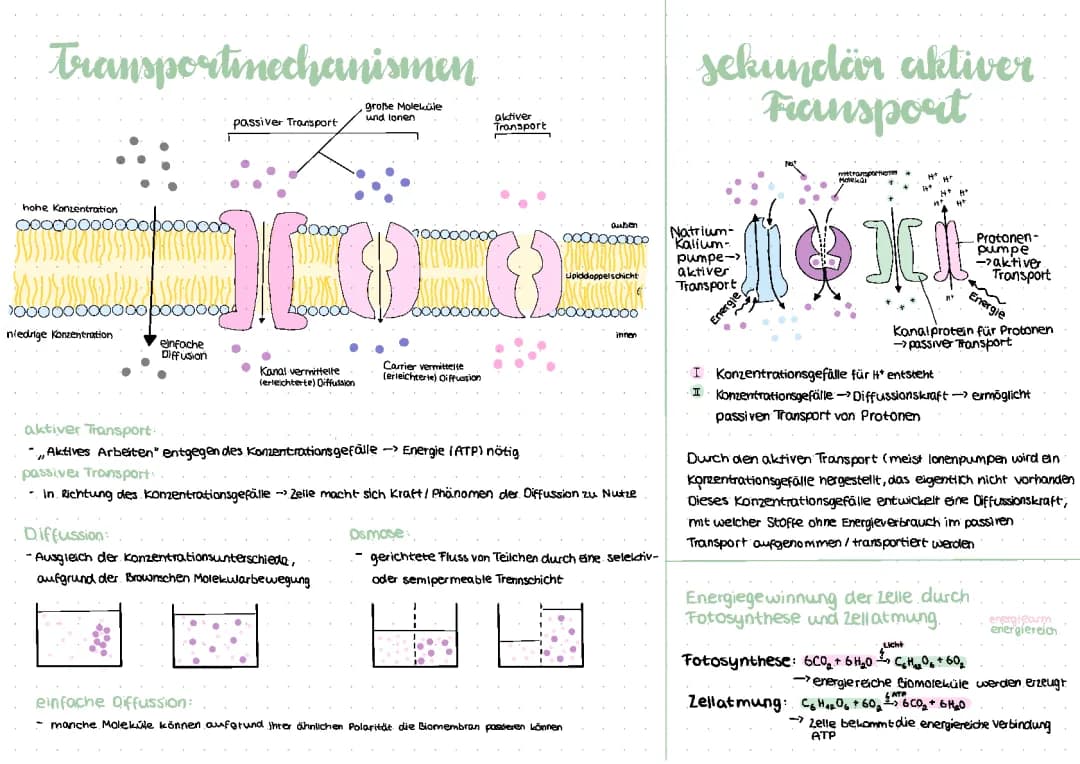 Transportmechanismen
passiver Transport
große Moleküle
und Ionen
aktiver
Transport
hohe Konzentration
außen
Lipiddoppelschicht
niedrige Konzentration
innen
einfache
Diffusion
Kanal vermittelte
(erleichterte) Diffusion
Carrier vermittelte
(erleichterte) Diffusion
aktiver Transport:
- „Aktives Arbeiten" entgegen des Konzentrationsgefälle → Energie (ATP) nötig
passiver Transport:
- in Richtung des Konzentrationsgefälle → Zelle macht sich Kraft / Phänomen der Diffussion zu Nutze
Diffussion:
- Ausgleich der Konzentrationsunterschiede,
aufgrund der Brownschen Molekularbewegung
Osmose:
- gerichtete Fluss von Teilchen durch eine selektiv-
oder semipermeable Trennschicht
einfache Diffusion:
- manche Moleküle können aufgrund ihrer ähnlichen Polarität die Biomembran passieren können
sekundär aktiver
Transport
Na⁺
mittransportiertes
Molekül
H⁺ H⁺
H⁺ H⁺ H⁺
H⁺ H⁺
Natrium-
Kalium-
pumpe→
aktiver
Transport
Energie
Protonen-
pumpe
→aktiver
Transport
H⁺
Energie
Kanalprotein für Protonen
→ passiver Transport
I Konzentrationsgefälle für H⁺ entsteht
II Konzentrationsgefälle → Diffussionskraft → ermöglicht
passiven Transport von Protonen
Durch den aktiven Transport (meist Ionenpumpen wird ein
Konzentrationsgefälle hergestellt, das eigentlich nicht vorhanden
Dieses Konzentrationsgefälle entwickelt eine Diffussionskraft,
mit welcher Stoffe ohne Energieverbrauch im passiven
Transport aufgenommen / transportiert werden
Energiegewinnung der Zelle durch
Fotosynthese und Zellatmung
energiearm
energiereich
Licht
Fotosynthese: 6CO₂ + 6H₂O → C₆H₁₂O₆ + 6O₂
→ energiereiche Biomoleküle werden erzeugt
ATP
Zellatmung: C₆H₁₂O₆ + 6O₂ → 6CO₂ + 6H₂O
→ Zelle bekommt die energiereiche Verbindung
ATP